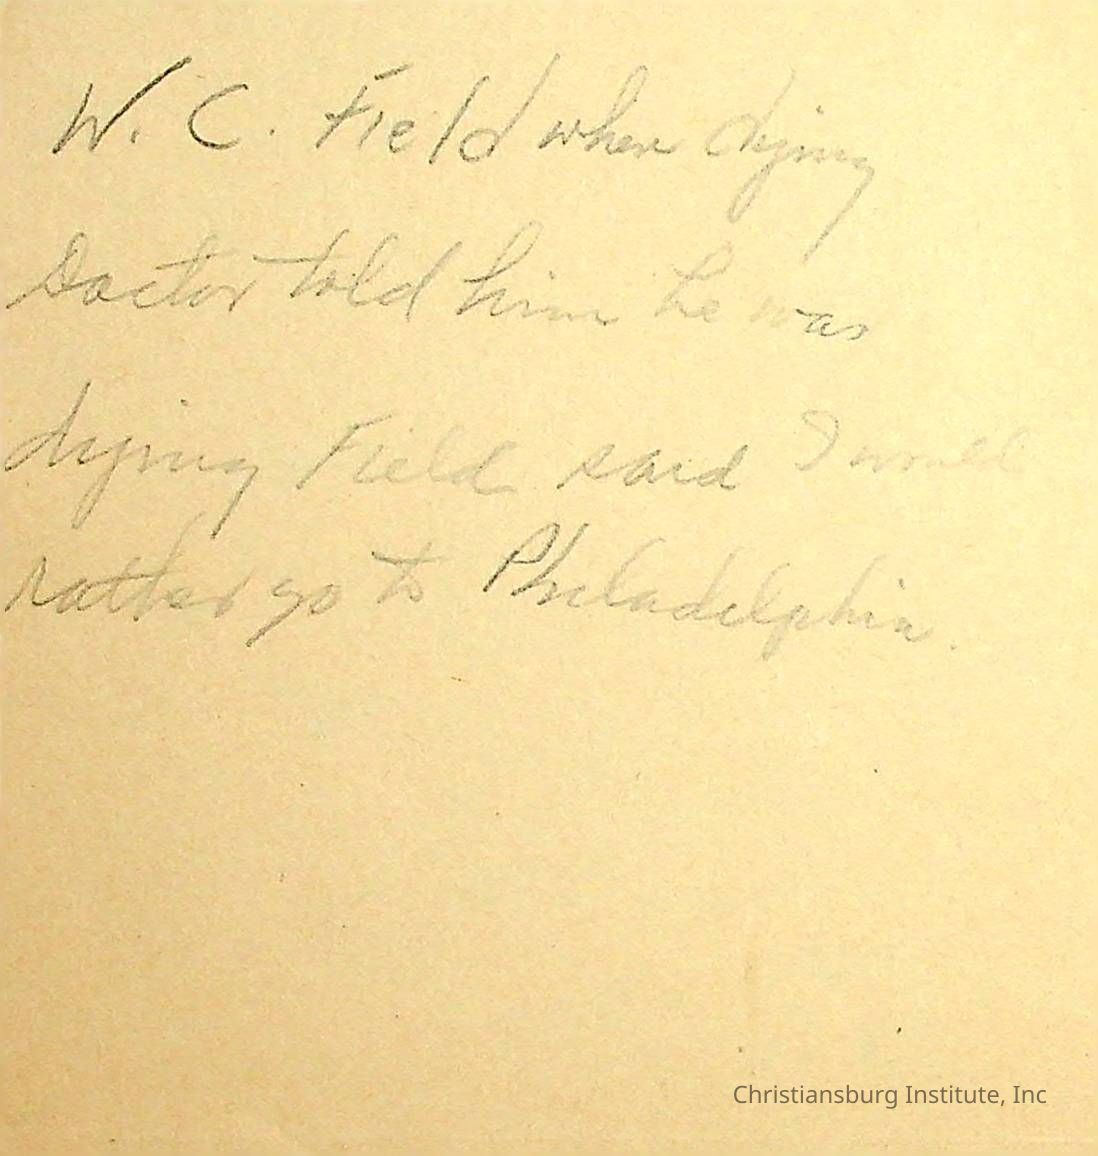 W. C. Field when dying
Doctor told him he was
dying Field said I would
rather go to Philadelphia.
Christiansburg Institute, Inc